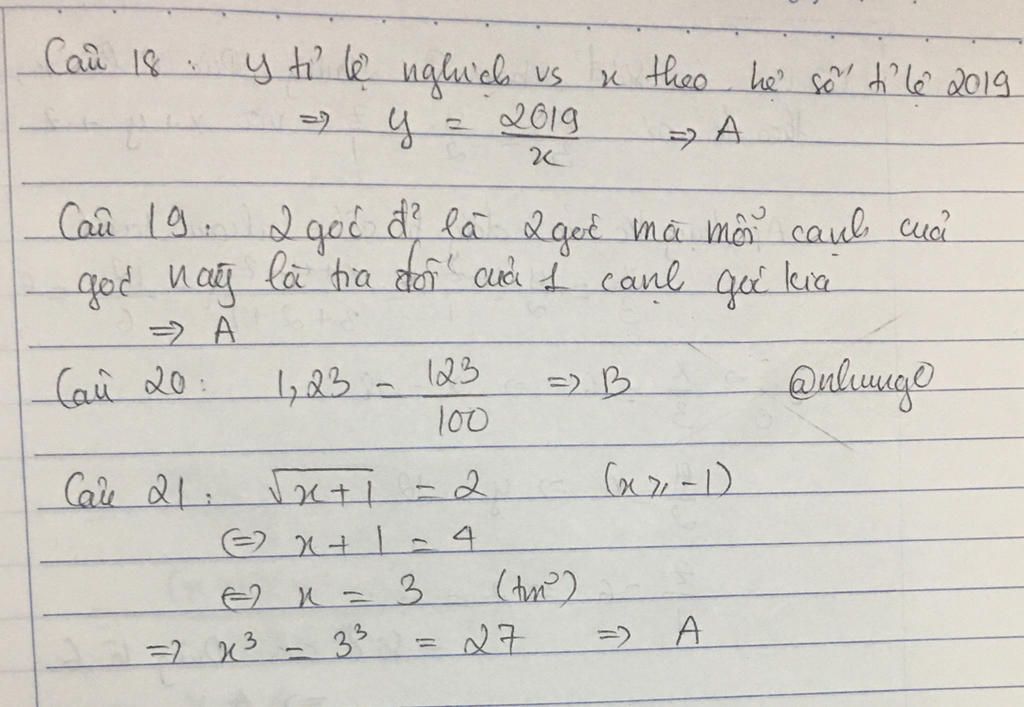 Câu 18: y tỉ lệ nghịch vs x theo hệ số tỉ lệ 2019
=> y = 2019/x => A
Câu 19: 2 góc đ² là 2 góc mà mỗi cạnh của
góc này là tia đối của 1 cạnh góc kia
=> A
Câu 20: 1,23 = 123/100 => B @nhung0
Câu 21: √(x+1) = 2 (x ≥ -1)
<=> x + 1 = 4
<=> x = 3 (tm²)
=> x³ = 3³ = 27 => A